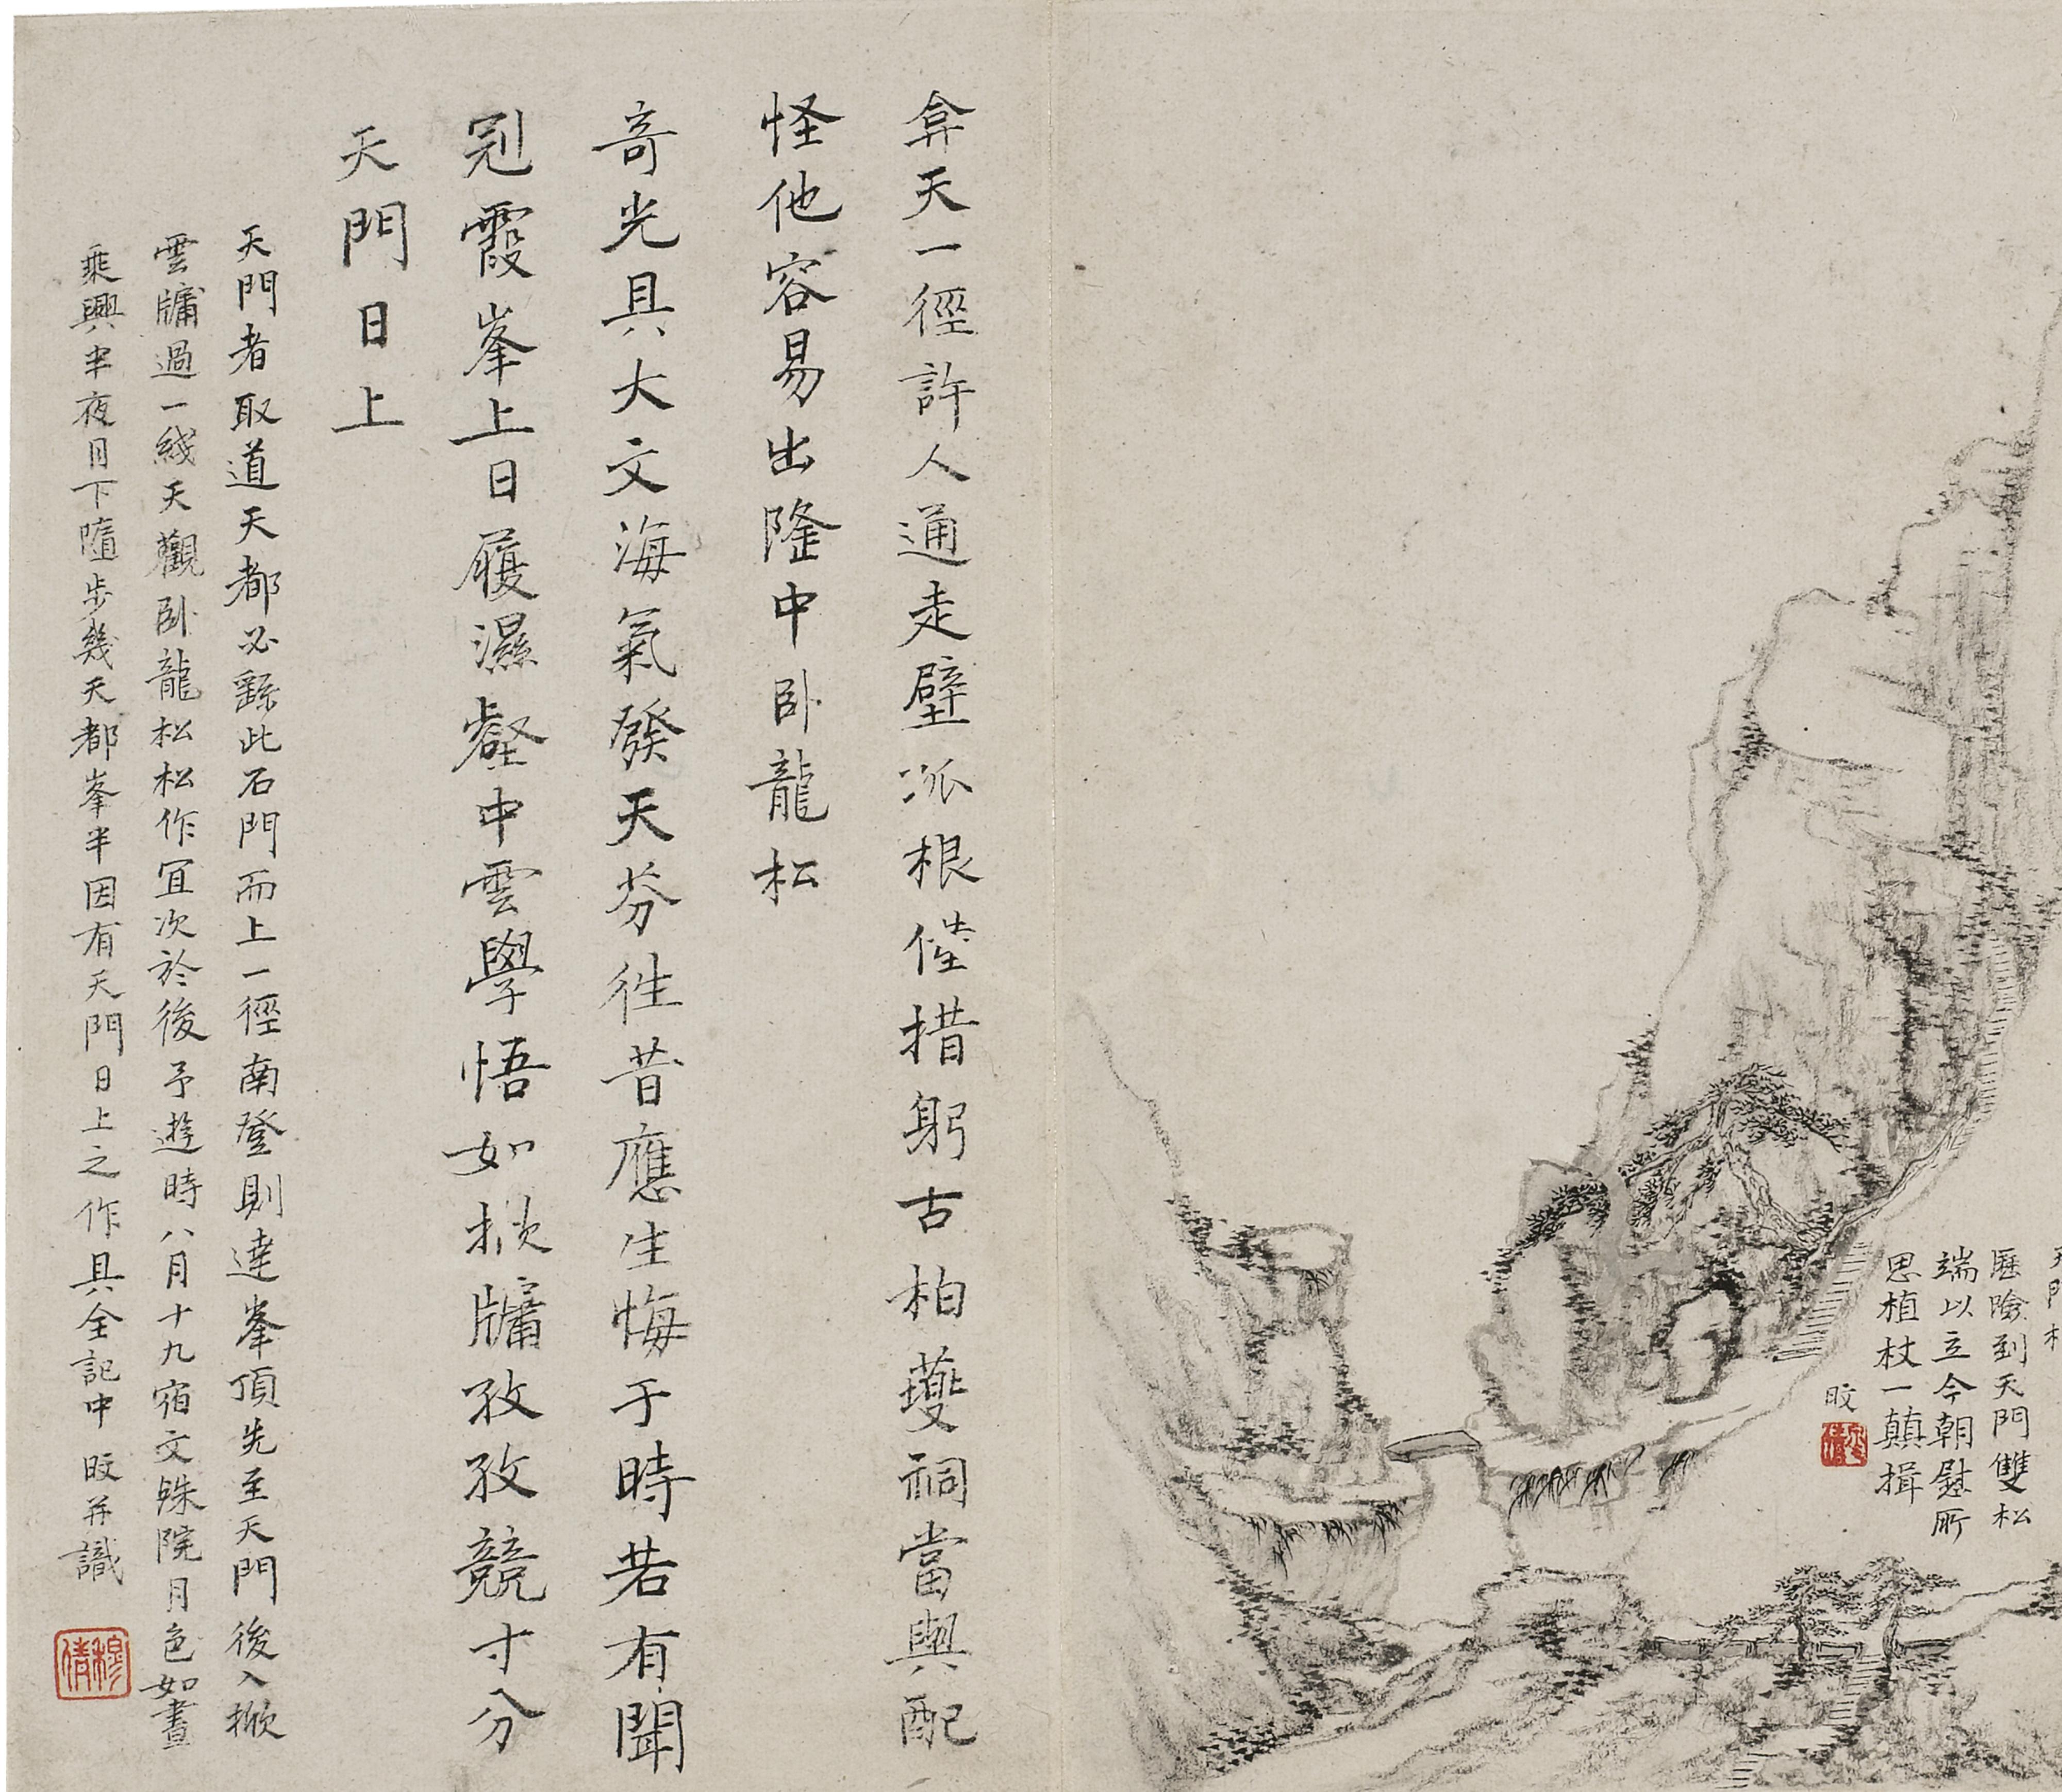 天門松
歷險到天門雙松
端以立今朝慰所
思植杖一顛揖
旼
弅天一徑許人通走壁派根倦措躬古柏夔祠當與配
怪他容易出隆中臥龍松
奇光具大文海氣發天芬往昔應生悔于時若有聞
冠霞峯上日履濕壑中雲學悟如掀牖孜孜競寸分
天門日上
天門者取道天都必繇此石門而上一徑南登則達峯頂先至天門後入掀
雲牖過一綫天觀臥龍松松作宜次於後予遊時八月十九宿文殊院月色如晝
乘興半夜月下隨步幾天都峯半因有天門日上之作具全記中 旼并識
穆倩